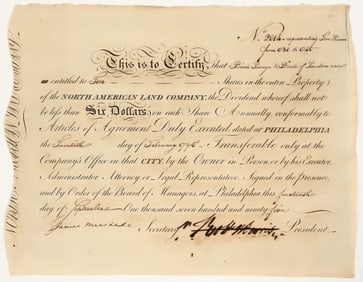 No
This is to Certify, that
is entitled to Ten Shares in the entire Property
of the NORTH AMERICAN LAND COMPANY, the Dividend whereof shall not
be less than Six Dollars on each Share Annually, conformably to
Articles of Agreement Duly Executed, dated at PHILADELPHIA
the Twentieth day of February 1795. Transferable only at the
Company's Office in that CITY, by the Owner in Person or by his Executor
Administrator, Attorney or Legal Representative. Signed in the presence,
and by Order of the Board of Managers, at Philadelphia, this
day of September One thousand seven hundred and ninety five
James Marshall Secretary Robt Morris President.